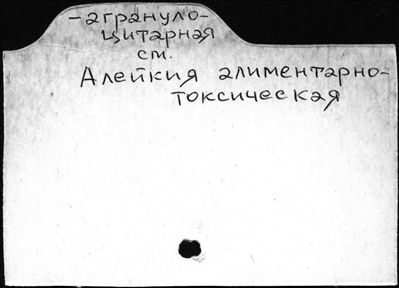 -агрануло-
цитарная
см.
Алейкия алиментарно-
токсическая